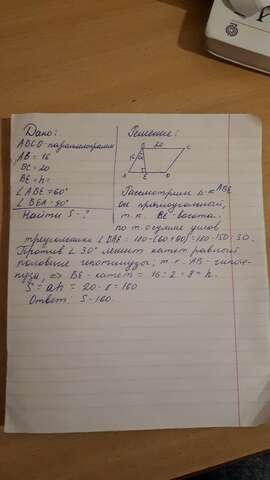 Дано:
ABCD-параллелограмм
AB = 16
BC = 20
BE = h
∠ABE = 60°
∠BEA = 90°
Найти S-?
Решение:
B 20 C
16 60
A E D
Рассмотрим Δ-к ABE,
он прямоугольный,
т.к. BE-высота.
по т. о сумме углов
треугольника ∠BAE = 180-(60+90)=180-150=30.
Против ∠30° лежит катет равный
половине гипотенузы; т.к. AB-гипоте-
нуза, => BE-катет = 16:2=8=h.
S = ah = 20·8=160
Ответ: S-160.